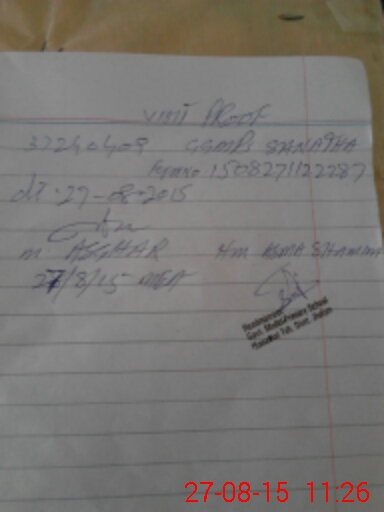 VISIT PROOF
37240409 GGMPS SANATHA
Form no 1508271122287
dt. 27-08-2015
M ASGHAR Hm ASMA SHAMIM
27/8/15 MEA
Headmistress
Govt. Model Primary School
Teh. Distt. Jhelum
27-08-15 11:26